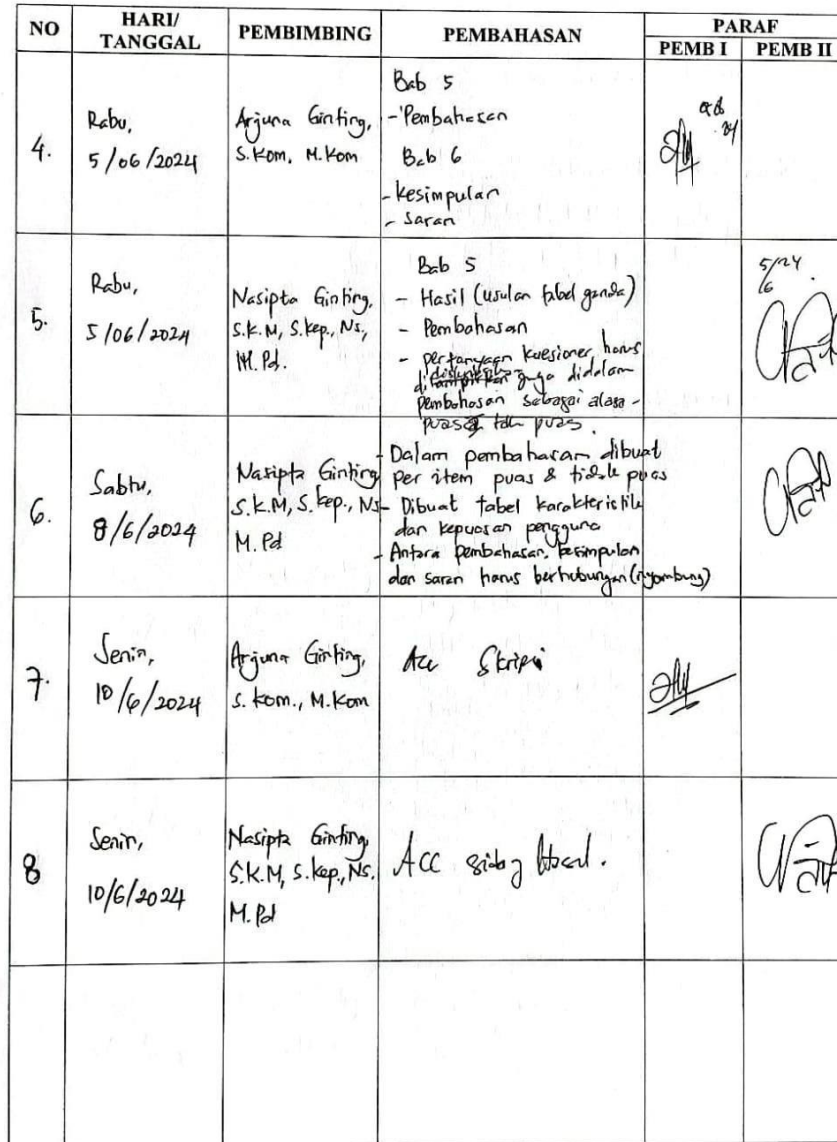 NO
HARI/
TANGGAL
PEMBIMBING
PEMBAHASAN
PARAF
PEMB I
PEMB II
4.
Rabu,
5/06/2024
Arjuna Ginting,
S.Kom, M.Kom
Bab 5
- Pembahasan
Bab 6
- Kesimpulan
- Saran
5.
Rabu,
5/06/2024
Nasipta Ginting,
S.K.M, S.Kep., Ns.,
M.Pd.
Bab 5
- Hasil (usulan tabel ganda)
- Pembahasan
- pertanyaan kuesioner harus
juga didalam
pembahasan sebagai alasan
puas
5/24
6
6.
Sabtu,
8/6/2024
Nasipta Ginting
S.K.M, S.Kep., Ns
M.Pd
- Dalam pembahasan dibuat
per item puas & tidak puas
- Dibuat tabel karakteristik
dan kepuasan pengguna
- Antara pembahasan, kesimpulan
dan saran harus berhubungan (nyambung)
7.
Senin,
10/6/2024
Arjuna Ginting,
S.Kom., M.Kom
Acc Skripsi
8
Senin,
10/6/2024
Nasipta Ginting
S.K.M, S.Kep., Ns.
M.Pd
ACC sidang